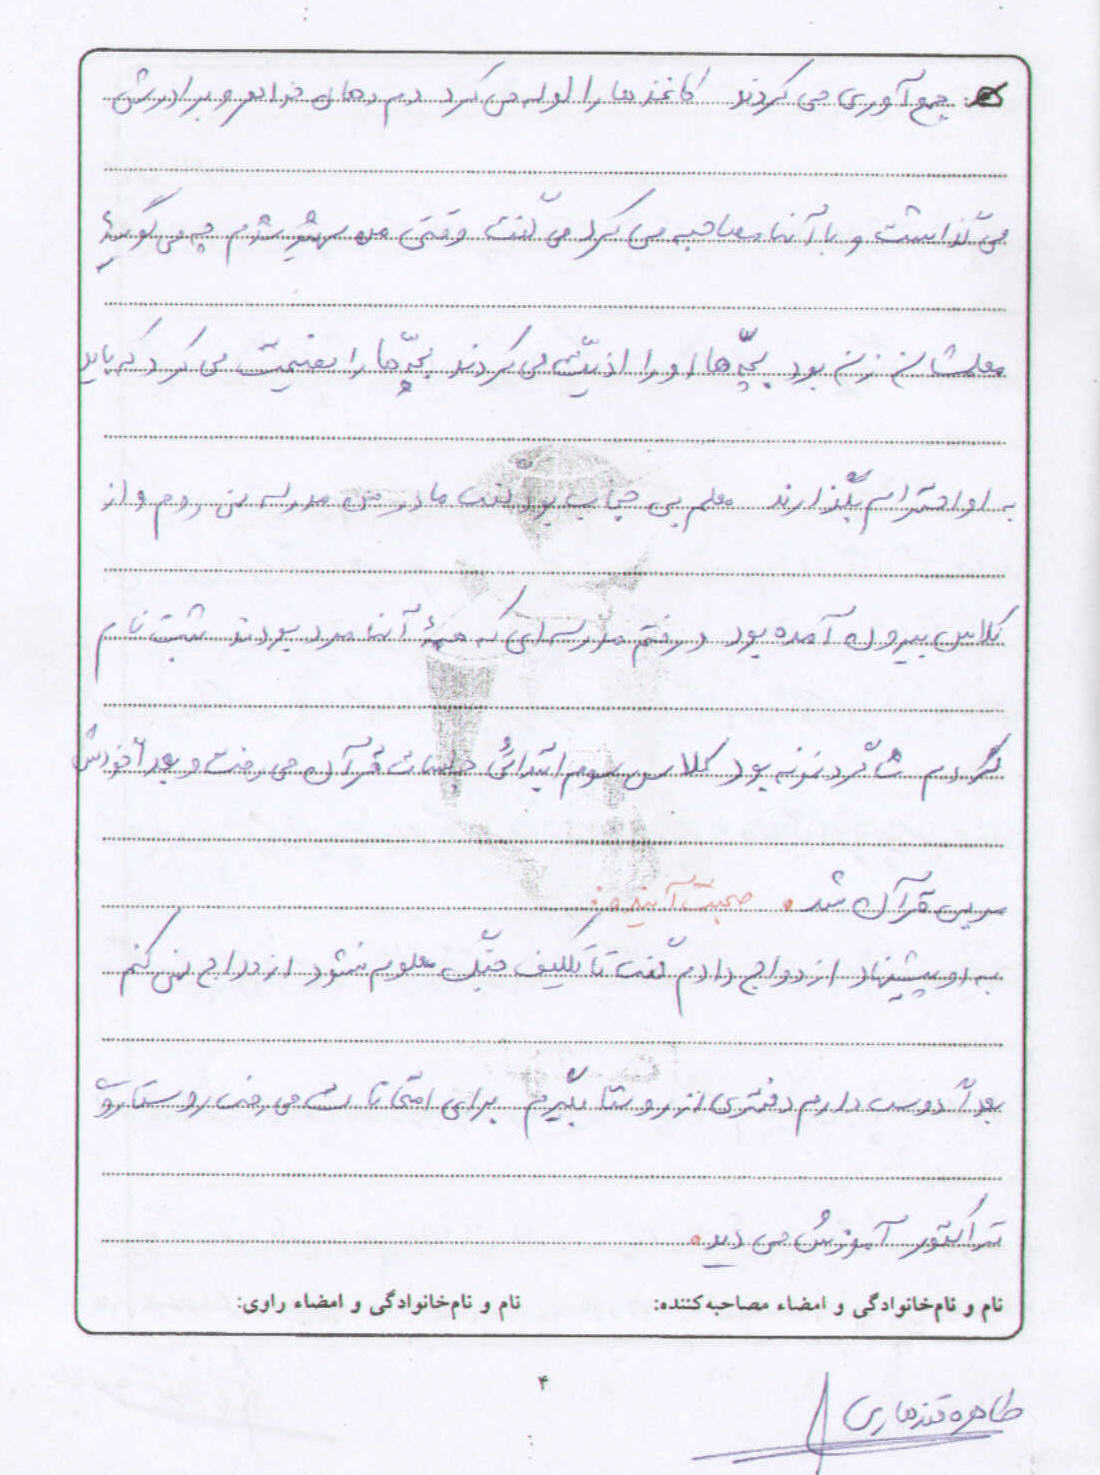 ج: جمع آوری می کردند کاغذها را لوله می کرد دم دهان خواهر و برادرش
می گذاشت و با آنها مصاحبه می کرد می گفت وقتی من شهید شدم چه می گویید؟
معلمشان زن بود بچّه ها او را اذیّت می کردند بچّه ها را نصیحت می کرد که باید
به او احترام بگذارند معلم بی حجاب بود گفت مادر من مدرسه نمی روم و از
کلاس بیرون آمده بود و رفتم مدرسه ای که همهٔ آنها مرد بودند ثبت نام
کردم شاگرد نمونه بود کلاس سوم ابتدائی جلسات قرآن می رفت و بعداً خودش
مربی قرآن شد. صحبت آینده:
به او پیشنهاد ازدواج دادم گفت تا تکلیف جنگ معلوم نشود ازدواج نمی کنم
بعداً دوست دارم دختری از روستا بگیرم برای امتحانات می رفت روستا روی
تراکتور آموزش می دید.
نام و نام‌خانوادگی و امضاء مصاحبه‌کننده: نام و نام‌خانوادگی و امضاء راوی:
۴
طاهره قندهاری